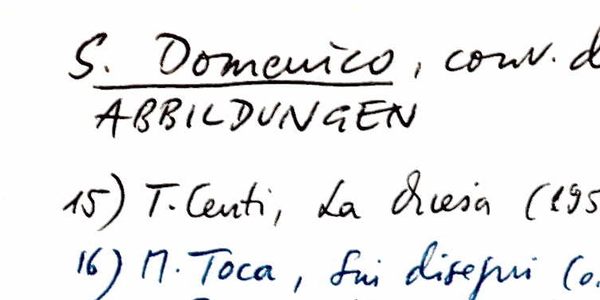 S. Domenico, conv. d
ABBILDUNGEN
15) T. Centi, La chiesa (195
16) M. Toca, Sui disegni (o.